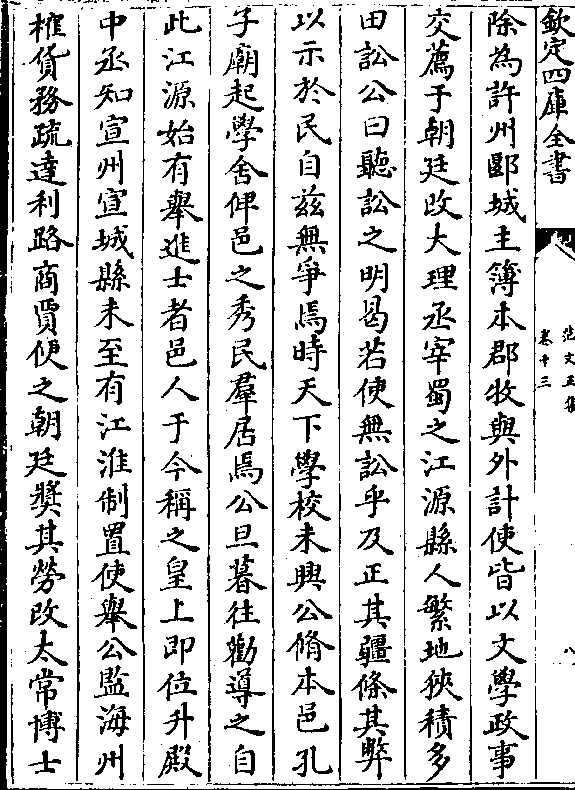 欽定四庫全書
范文正集
卷十三
八
除為許州郾城主簿本郡牧與外計使皆以文學政事
交薦于朝廷改大理丞宰蜀之江源縣人繁地狹積多
田訟公曰聽訟之明曷若使無訟乎及正其疆條其弊
以示於民自兹無爭焉時天下學校未興公脩本邑孔
子廟起學舍俾邑之秀民羣居焉公旦暮往勸導之自
此江源始有舉進士者邑人于今稱之皇上即位升殿
中丞知宣州宣城縣未至有江淮制置使舉公監海州
榷貨務疏達利路商賈便之朝廷奬其勞改太常博士